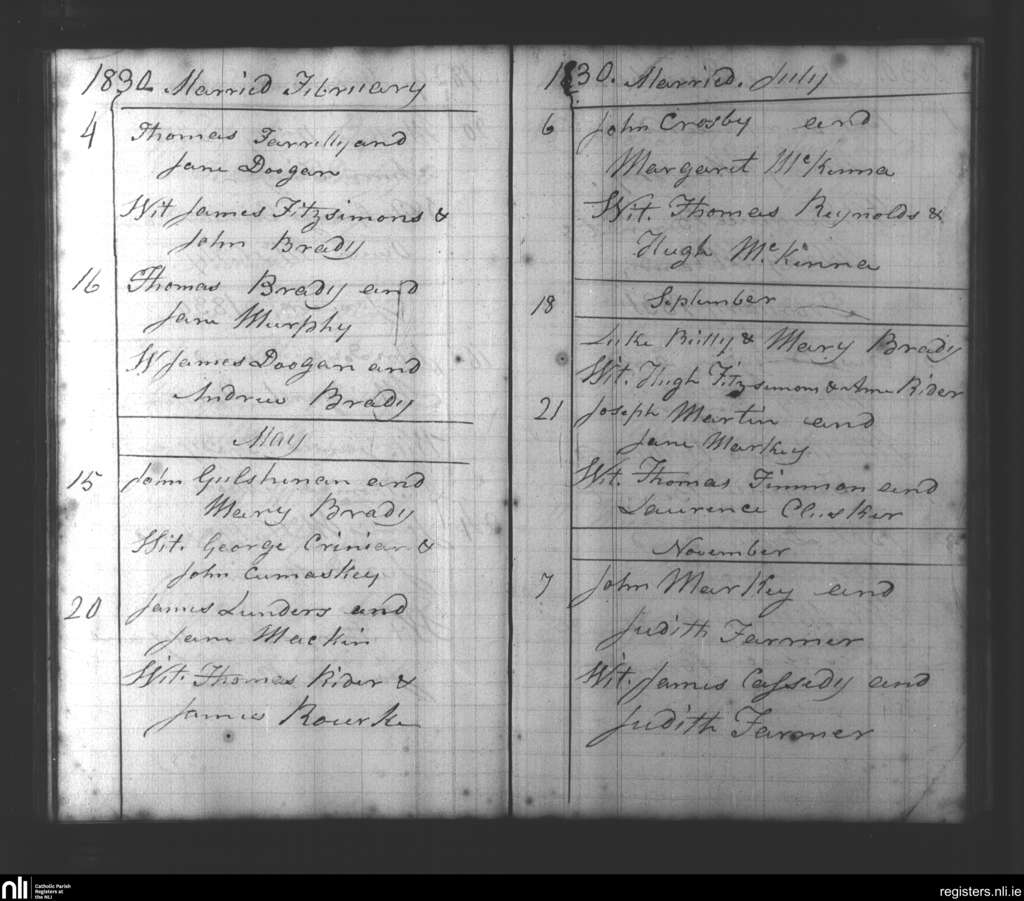 1830 Married February
4 Thomas Farrilly and
Jane Doogan
Wit James Fitzsimons &
John Brady
16 Thomas Brady and
Jane Murphy
W James Doogan and
Andrew Brady
May
15 John Gulshinan and
Mary Brady
Wit. George Criniar &
John Cumaskey
20 James Lunders and
Jane Mackin
Wit. Thomas Rider &
James Rourke
1830. Married. July
6 John Crosby and
Margaret McKenna
Wit. Thomas Reynolds &
Hugh McKenna
18 September
Luke Reilly & Mary Brady
Wit. Hugh Fitzsimons & Ann Rider
21 Joseph Martin and
Jane Markey.
Wit. Thomas Finnnon and
Laurence Clusker
November
7 John Markey and
Judith Farmer
Wit. James Cassedy and
Judith Farmer
nli
Catholic Parish
Registers at
the NLI
registers.nli.ie